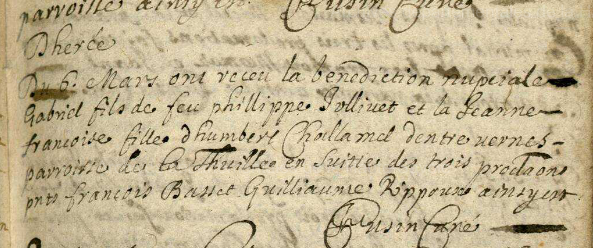 parroisse ainsy est. Cusin Curé
Dherée
Du 6. Mars ont receu la benediction nuptiale
Gabriel fils de feu phillippe Jollivet et la Jeanne
francoise fille dhumbert Challamel dentrevernes
parroisse de la Thuille en suitte des trois proclaõns
pnts francois Basset Guilliaume Rippoux ainsy est
Cusin Curé